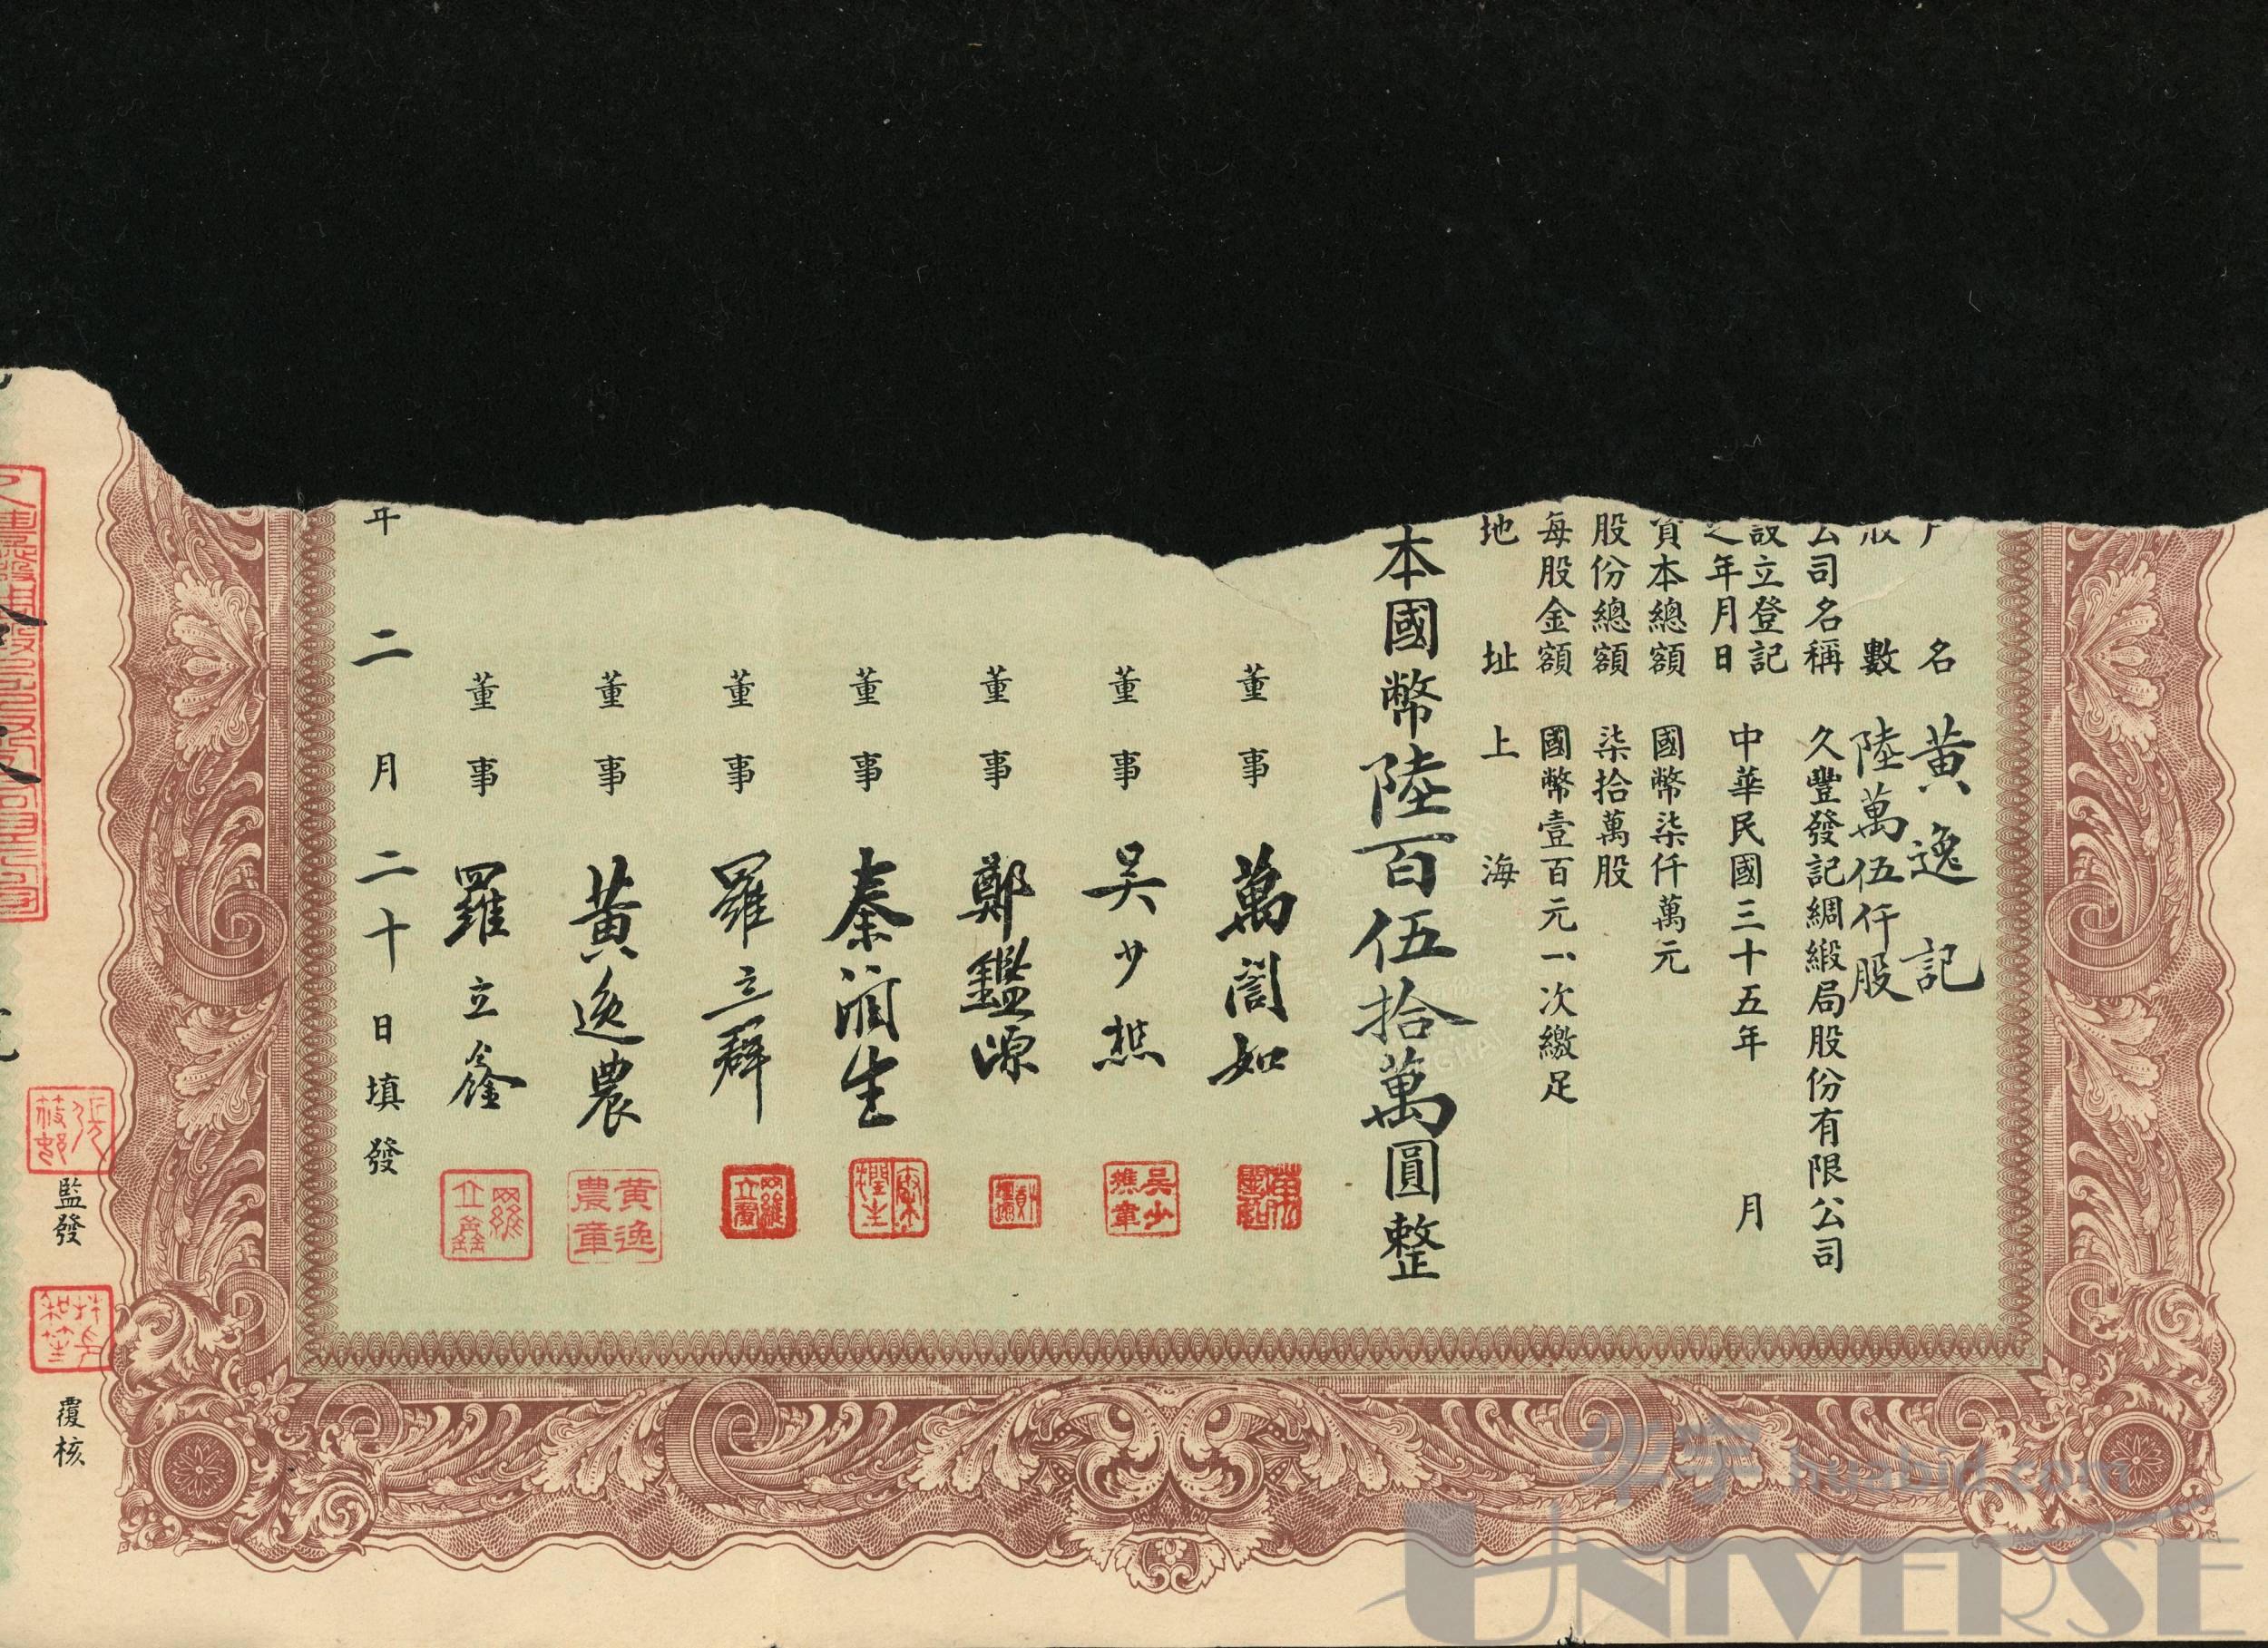 名 黃逸記
數 陸萬伍仟股
公司名稱 久豐發記綢緞局股份有限公司
設立登記
之年月日 中華民國三十五年 月
資本總額 國幣柒仟萬元
股份總額 柒拾萬股
每股金額 國幣壹百元一次繳足
地址 上海
本國幣陸百伍拾萬圓整
董事 萬誾如
董事 吳少樵
董事 鄭鑑源
董事 秦潤生
董事 羅立群
董事 黃逸農
董事 羅立鑫
年二月二十日填發
吳少樵章
黃逸農章
羅立鑫
監發
覆核
华宇 huabid.com
UNIVERSE